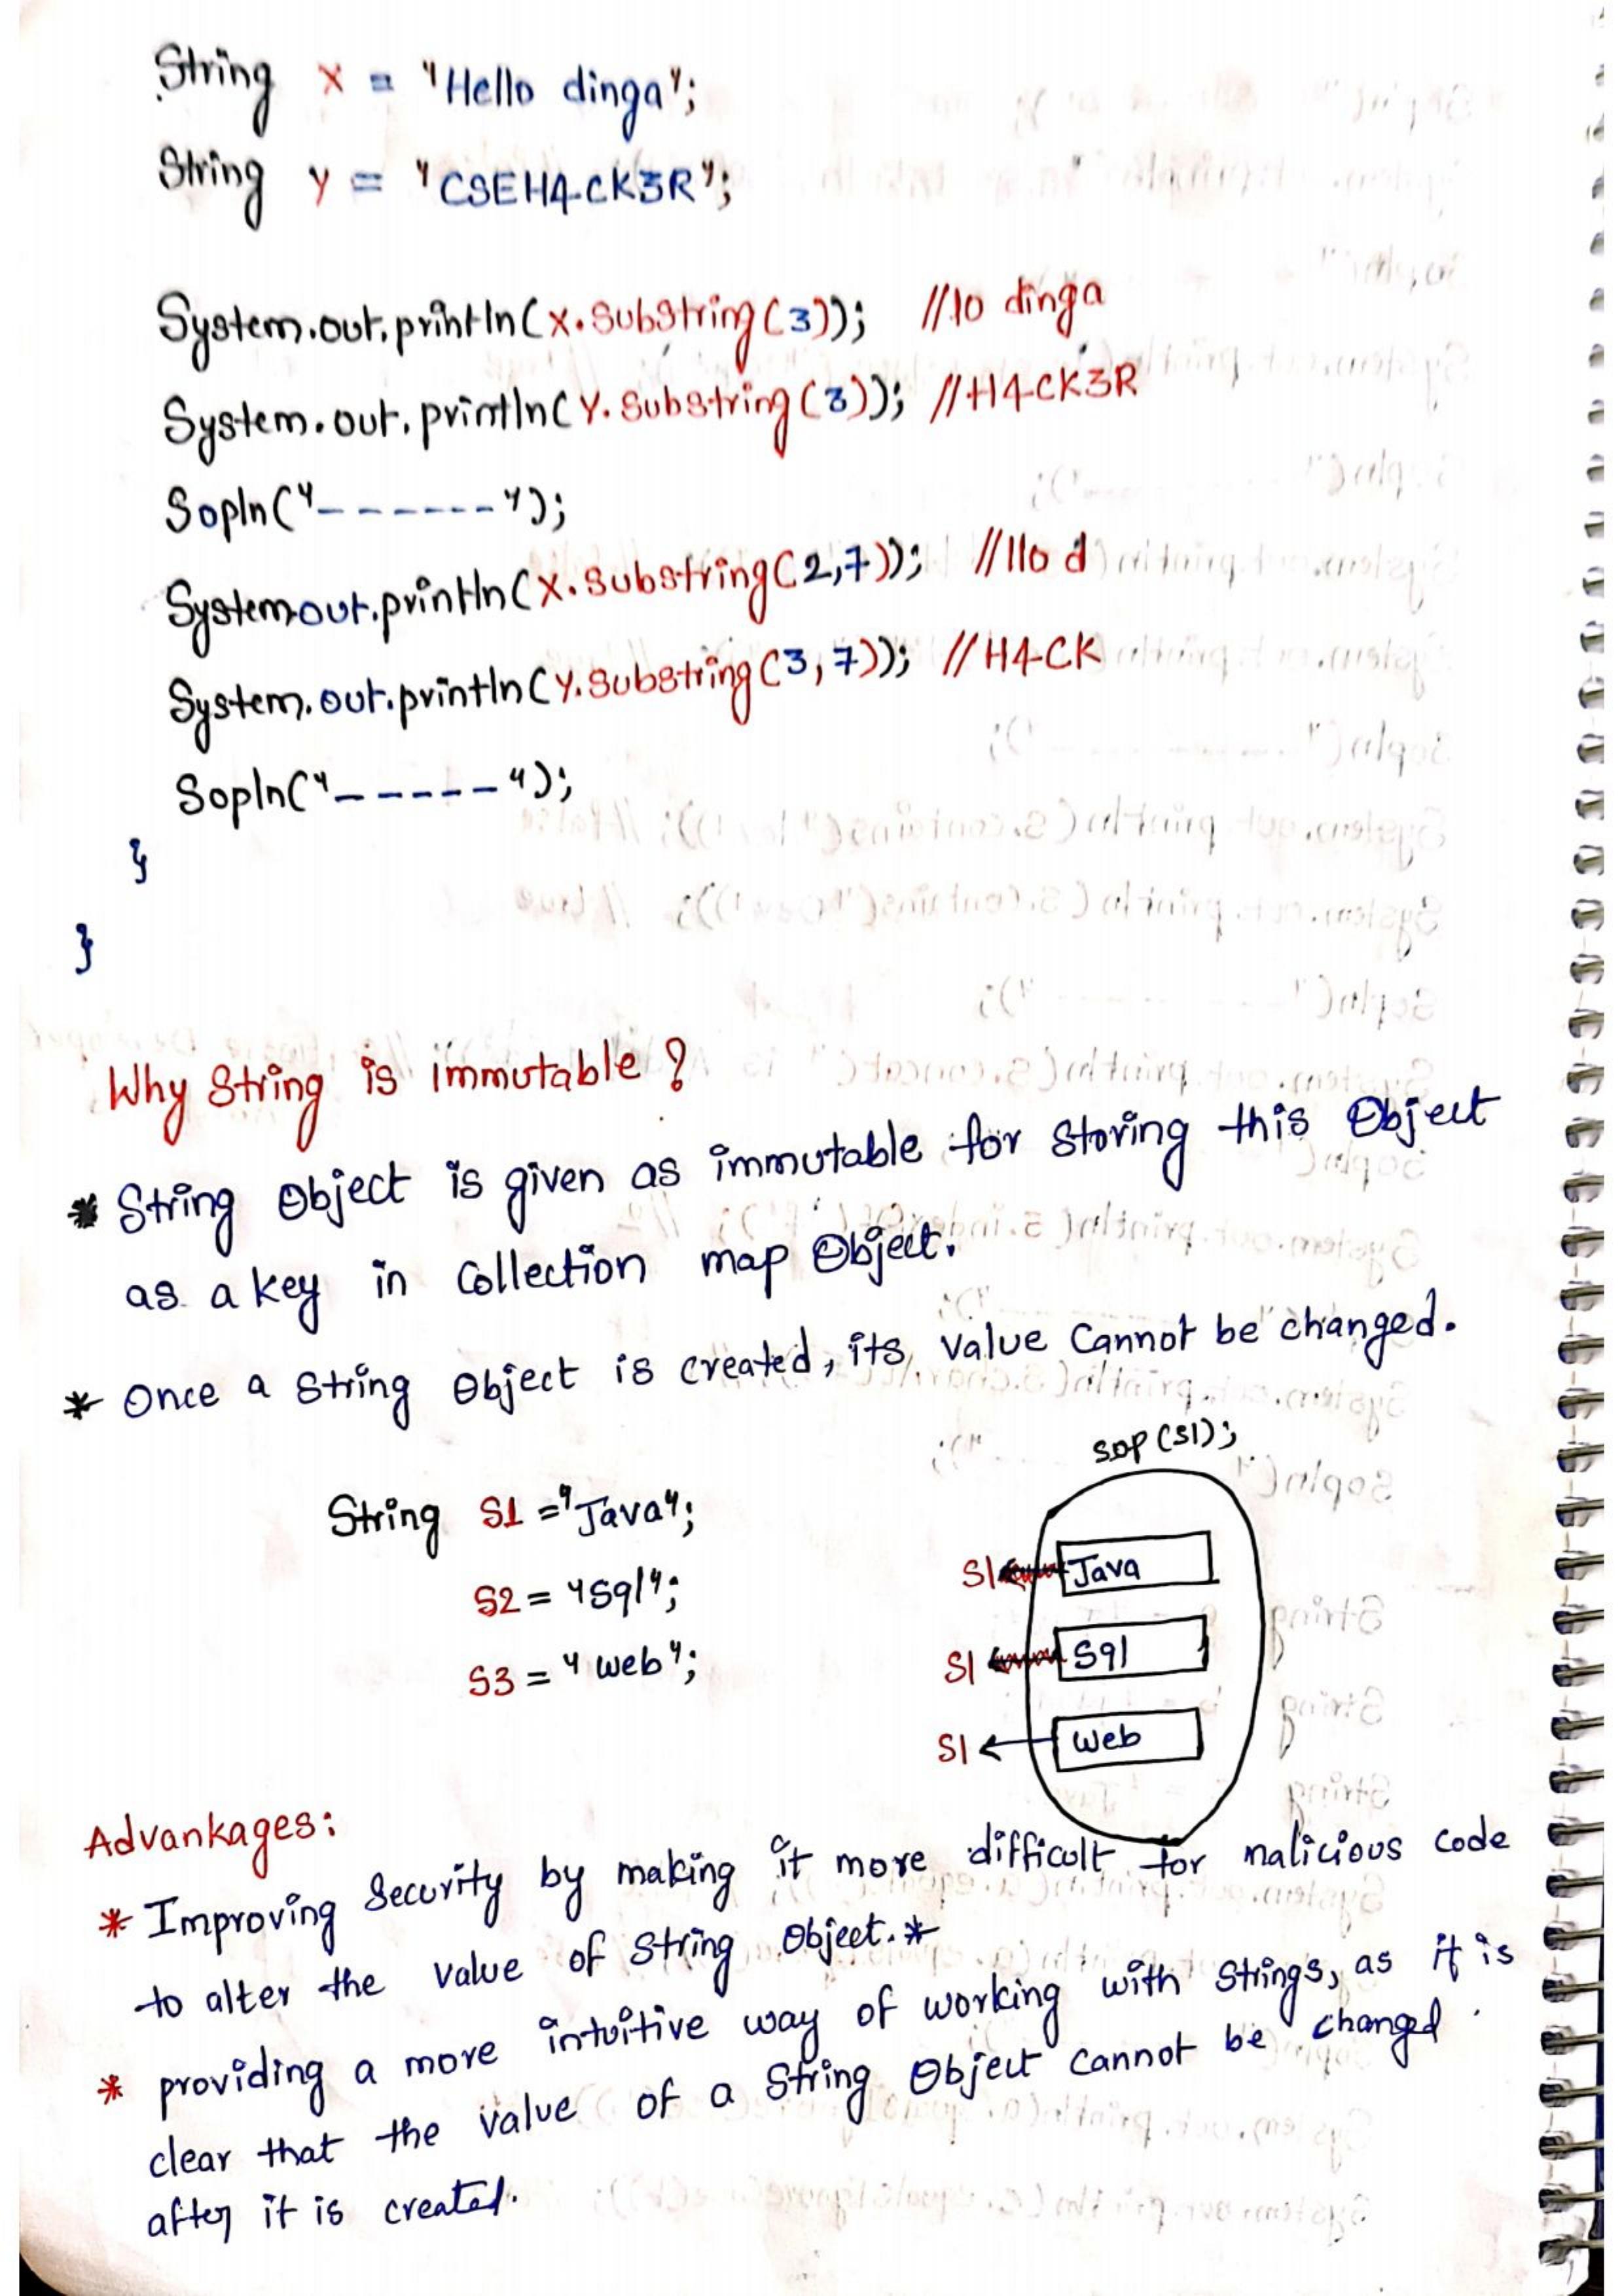 String x = "Hello dinga";
String y = "CSEH4CK3R";
System.out.println(x.substring(3)); //lo dinga
System.out.println(y.substring(3)); //H4CK3R
Sopln("------");
System.out.println(x.substring(2,7)); //llo d
System.out.println(y.substring(3,7)); //H4CK
Sopln("-----");
}
}
Why String is immutable?
* String Object is given as immutable for storing this Object
as a key in Collection map Object.
* Once a String Object is created, its value cannot be changed.
sop(S1);
String S1 = "Java";
S1 Java
S2 = "Sql";
S1 Sql
S3 = "web";
S1 Web
Advankages:
* Improving Security by making it more difficult for malicious code
to alter the value of String Object.*
* providing a more intuitive way of working with Strings, as it is
clear that the value of a String Object cannot be changed.
after it is created.